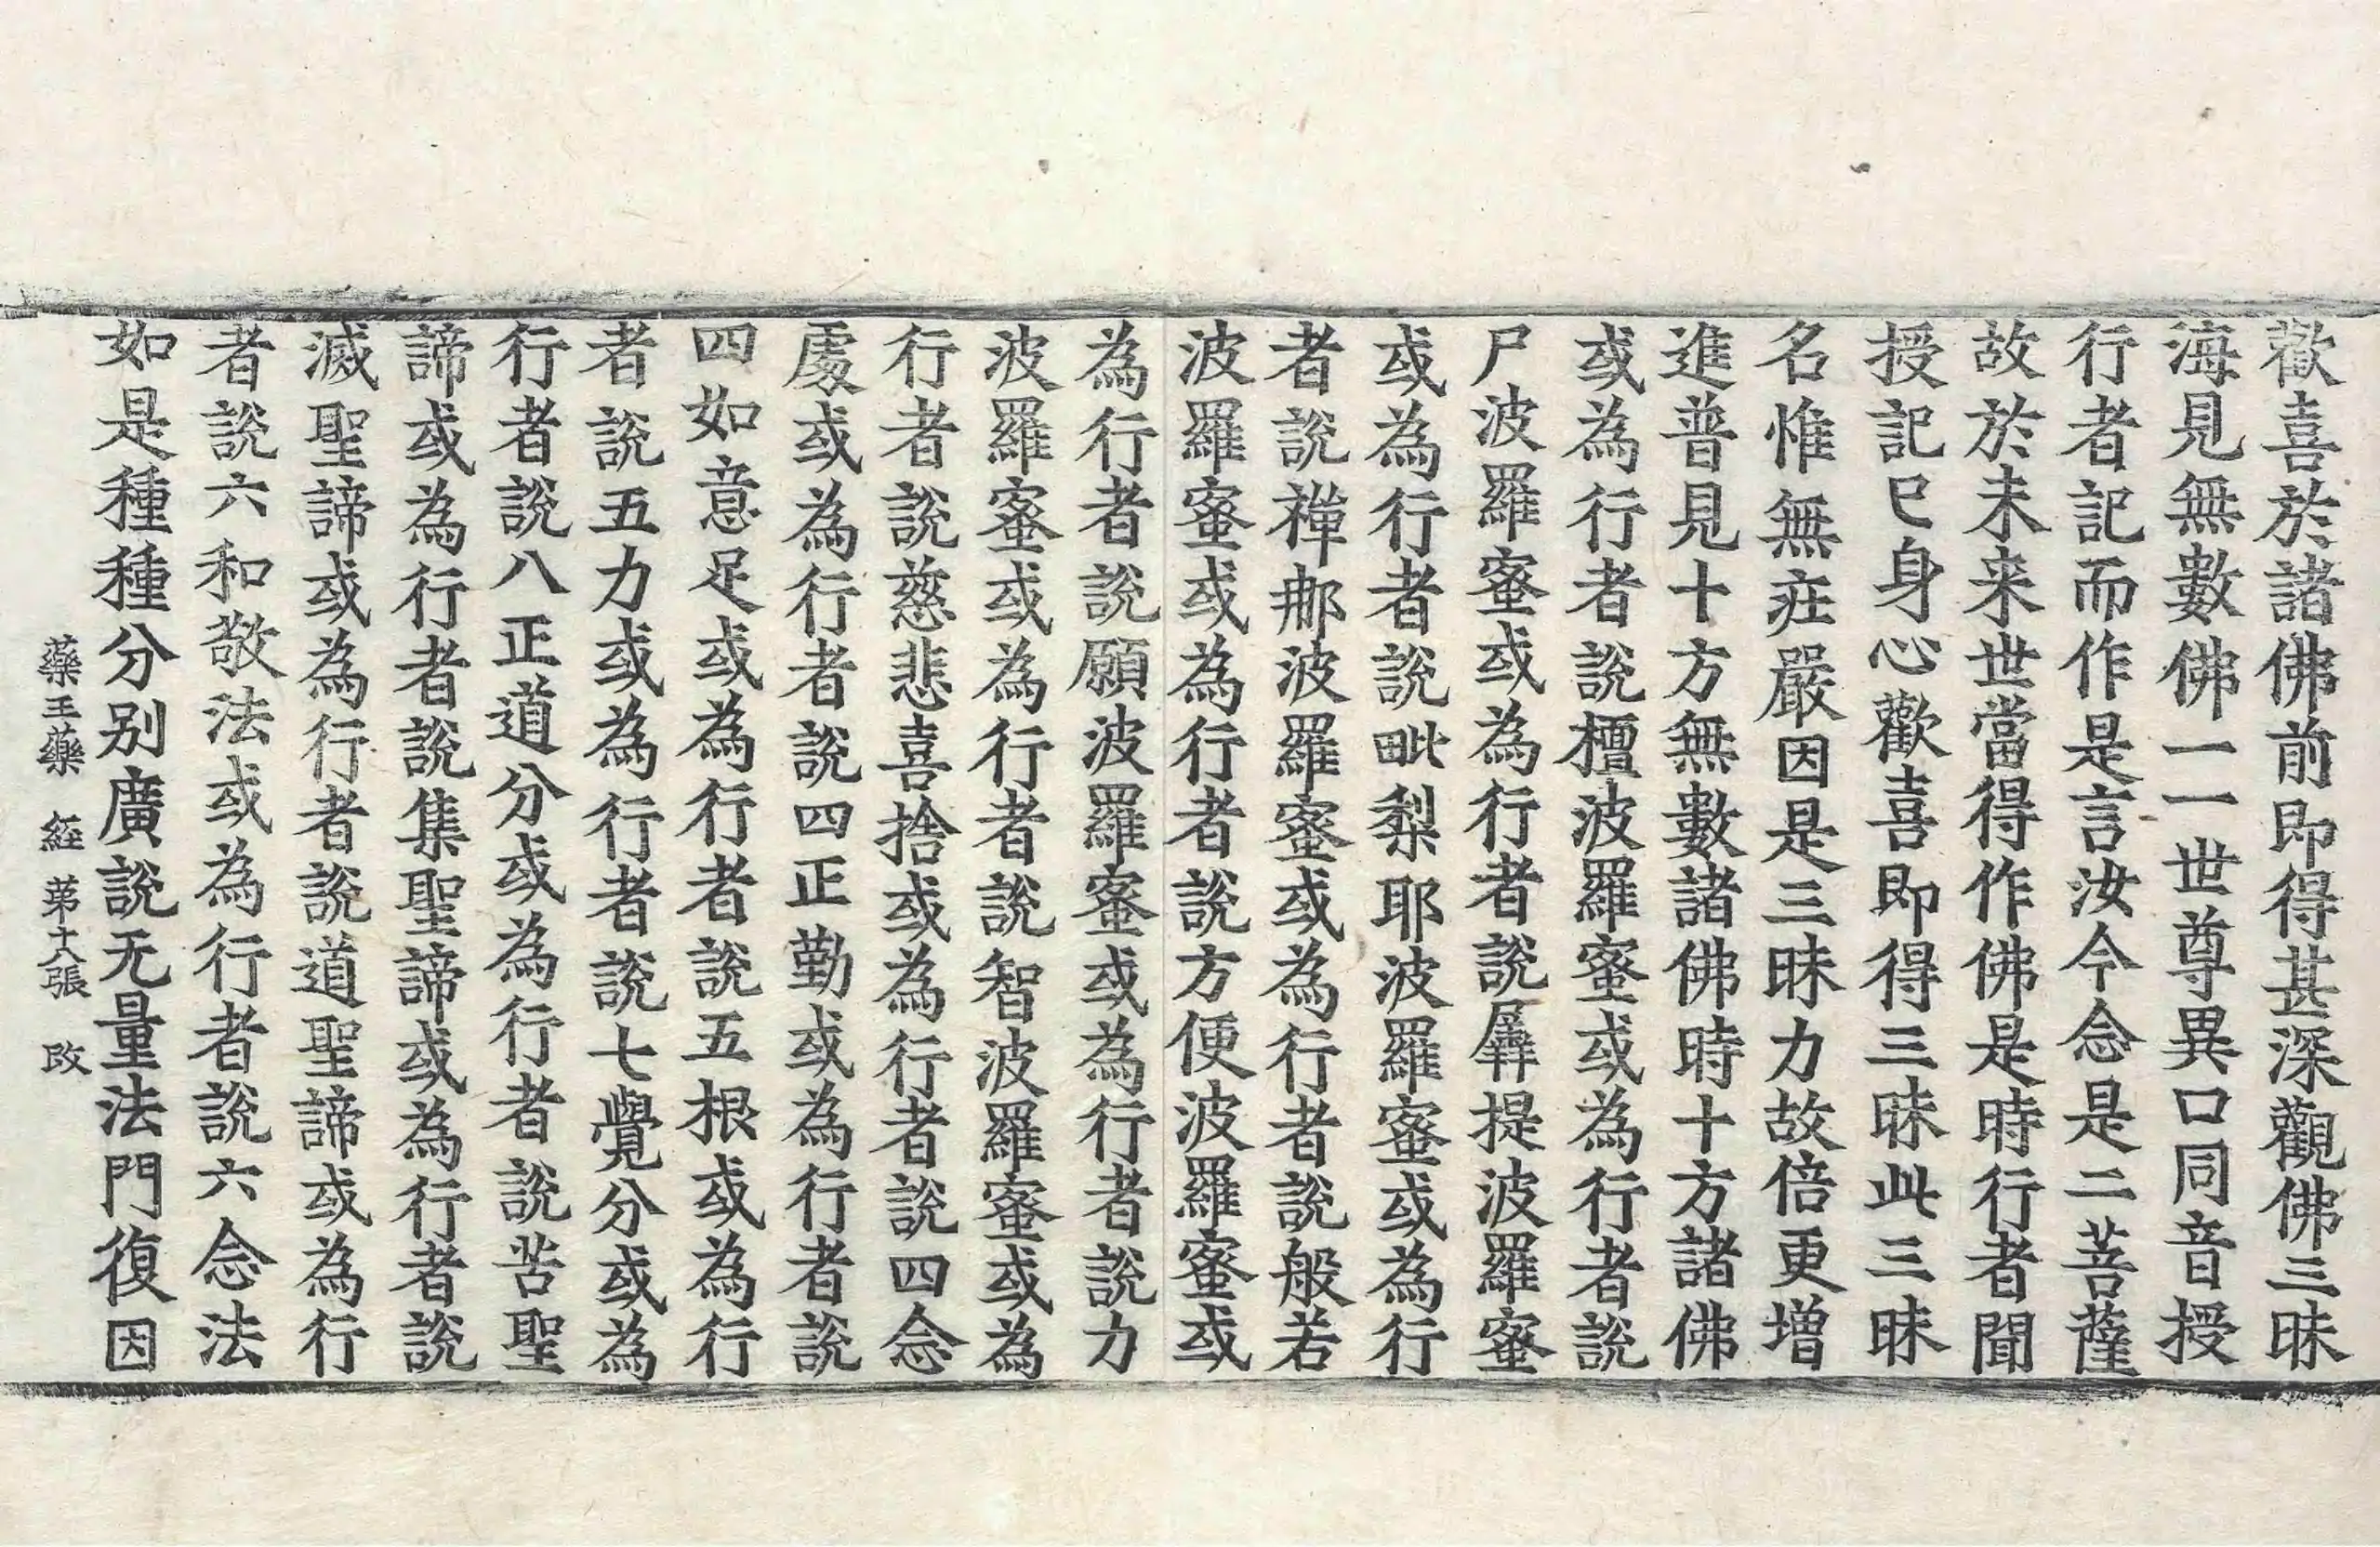 歡喜於諸佛前即得甚深觀佛三昧
海見無數佛一一世尊異口同音授
行者記而作是言汝今念是二菩薩
故於未来世當得作佛是時行者聞
授記已身心歡喜即得三昧此三昧
名惟無疘嚴因是三昧力故倍更增
進普見十方無數諸佛時十方諸佛
或為行者說檀波羅蜜或為行者說
尸波羅蜜或為行者說羼提波羅蜜
或為行者說毗梨耶波羅蜜或為行
者說禪那波羅蜜或為行者說般若
波羅蜜或為行者說方便波羅蜜或
為行者說願波羅蜜或為行者說力
波羅蜜或為行者說智波羅蜜或為
行者說慈悲喜捨或為行者說四念
處或為行者說四正勤或為行者說
四如意足或為行者說五根或為行
者說五力或為行者說七覺分或為
行者說八正道分或為行者說苦聖
諦或為行者說集聖諦或為行者說
滅聖諦或為行者說道聖諦或為行
者說六和敬法或為行者說六念法
如是種種分别廣說无量法門復因
藥王藥 經 苐十八張 改